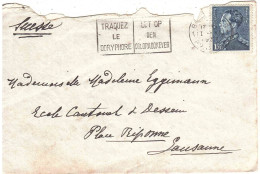 Suisse
TRAQUEZ LE DORYPHORE
LET OP DEN COLORADOKEVER
Mademoiselle Madeleine Eggimann
Ecole Cantonal de Dessin
Place Riponne
Lausanne